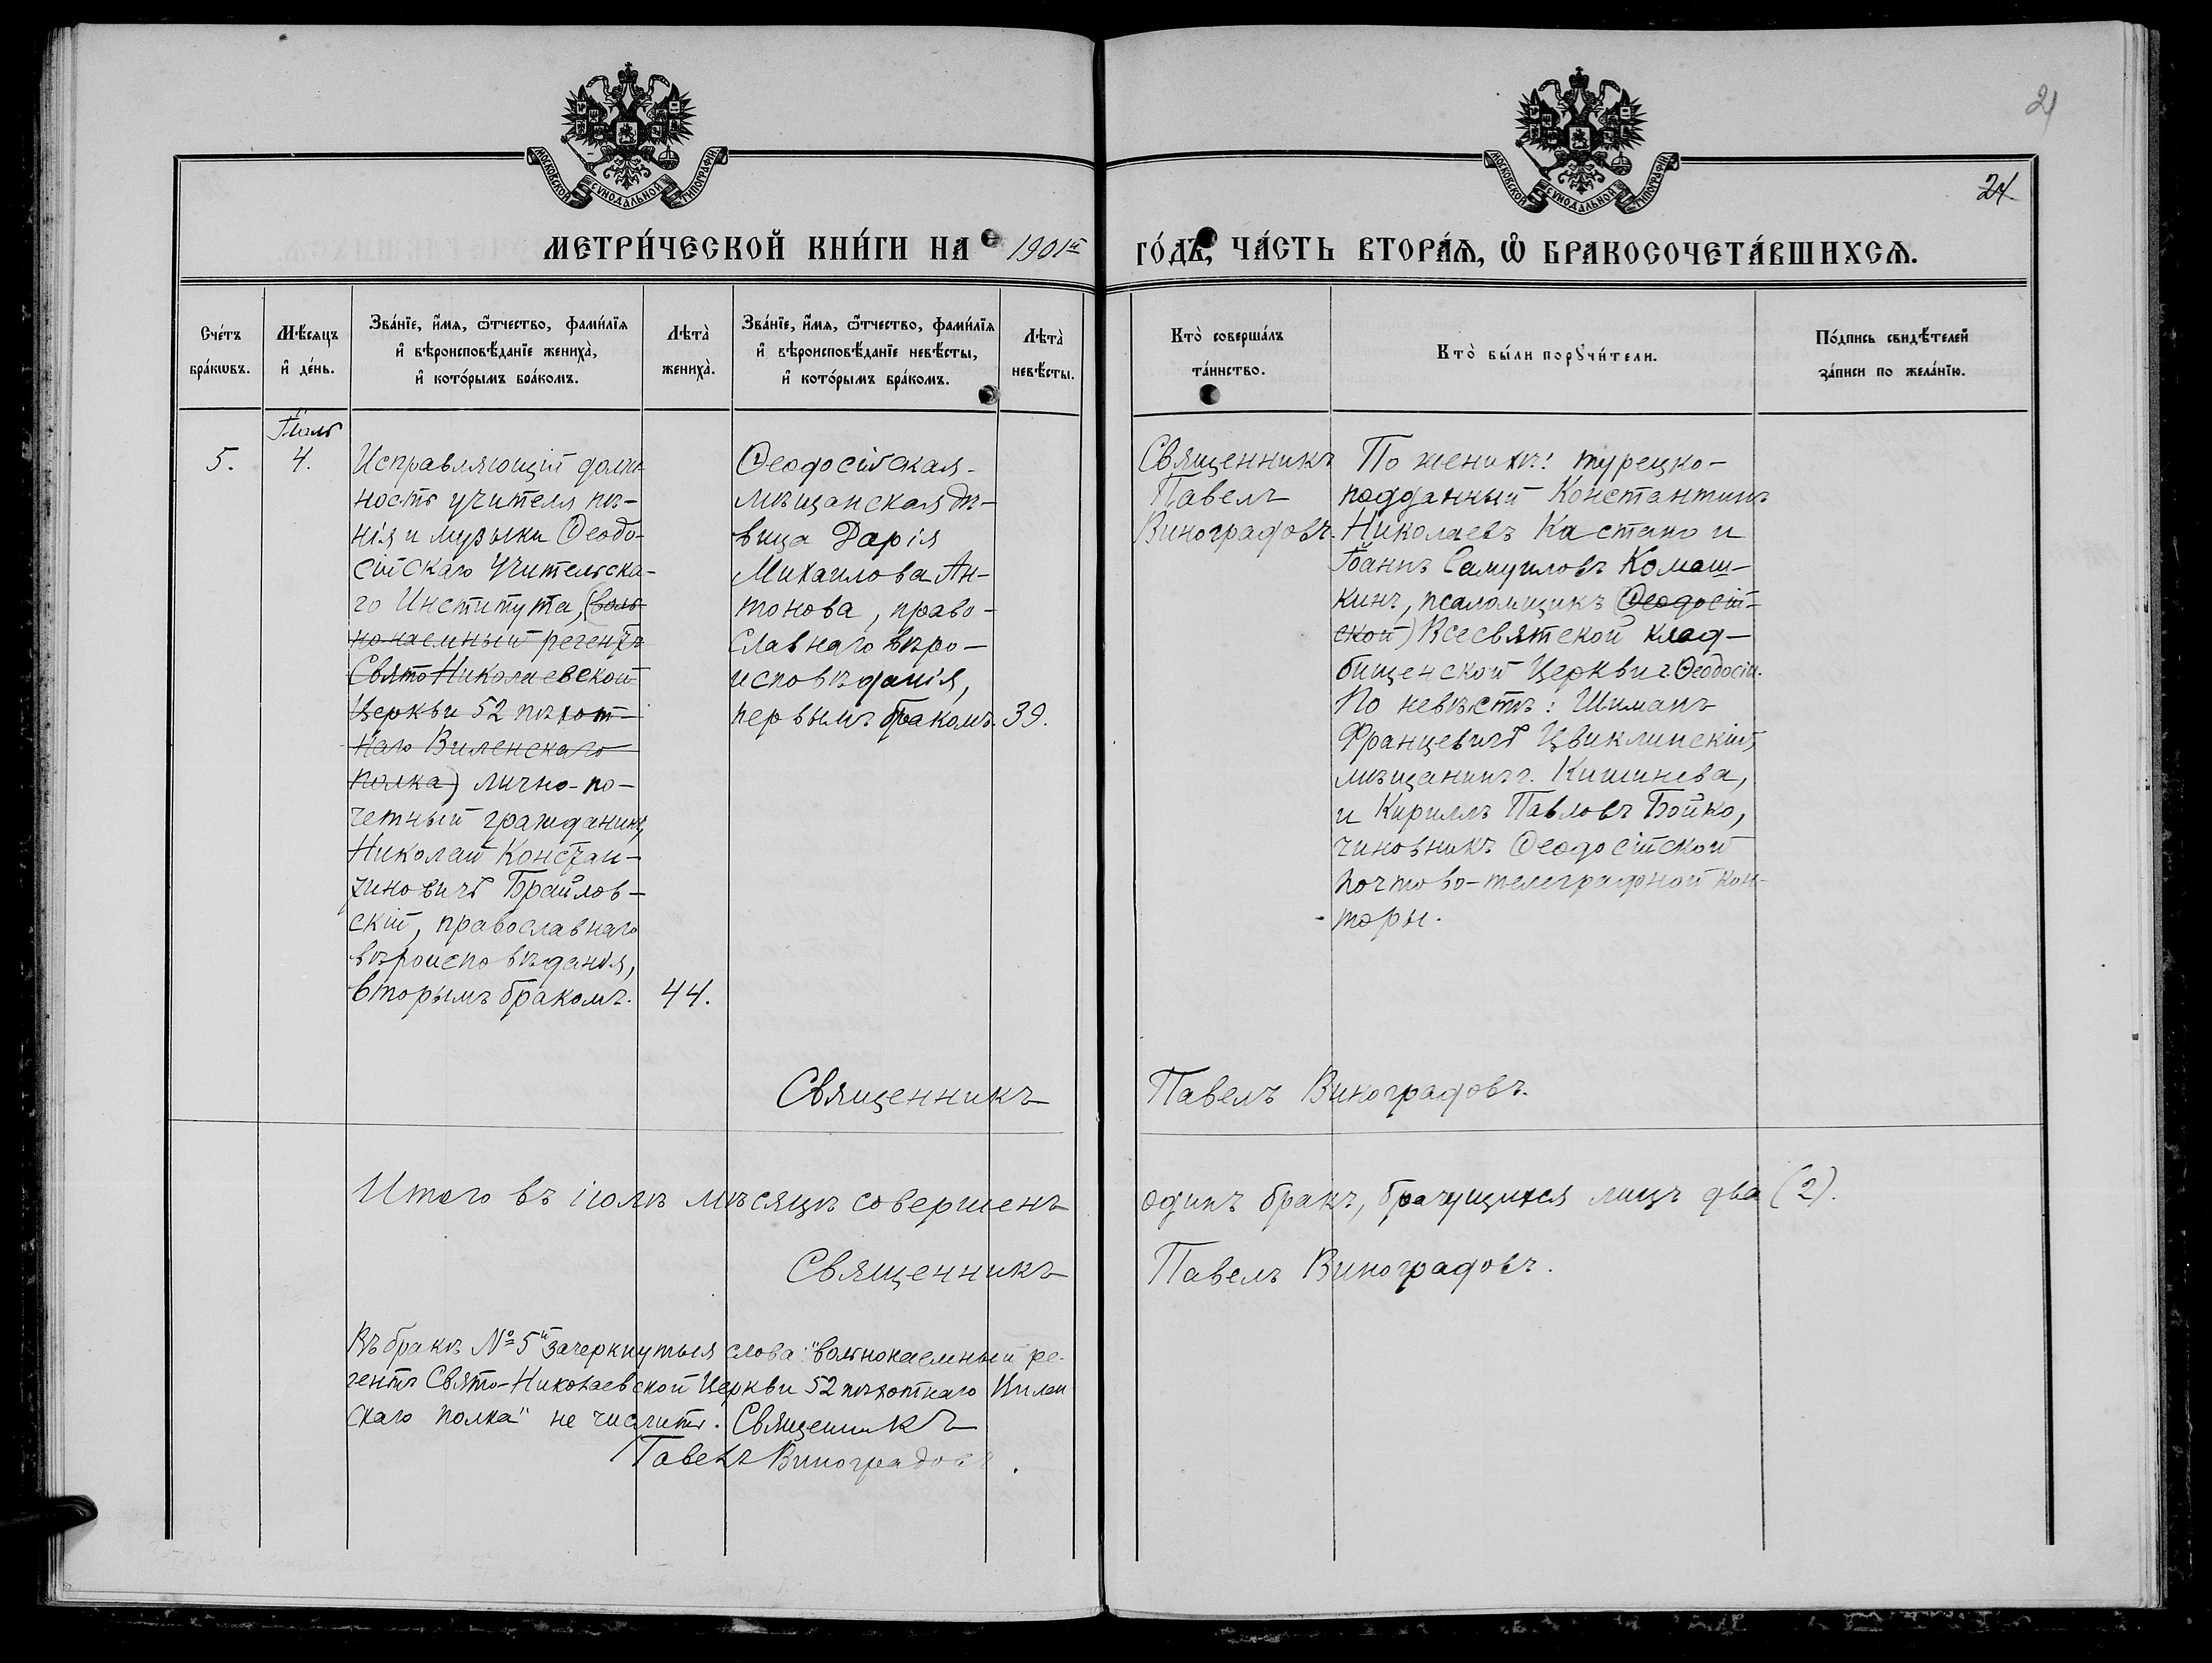 21
24
МОСКОВСКОЙ СѴНОДАЛЬНОЙ ТИПОГРАФІИ.
МОСКОВСКОЙ СѴНОДАЛЬНОЙ ТИПОГРАФІИ.
МЕТРИ́ЧЕСКОЙ КНИ́ГИ НА 1901й ГО́ДЪ, ЧА́СТЬ ВТОРА́Ѧ, Ѽ БРАКОСОЧЕТА́ВШИХСѦ.
Сче́тъ бра́кѡвъ.
Мѣ́сяцъ и҆ де́нь.
Зва́нїе, и҆́мѧ, ѻ҆́тчество, фами́лїѧ и҆ вѣроисповѣ́данїе жениха̀, и҆ кото́рымъ бра́комъ.
Лѣта̀ жениха̀.
Зва́нїе, и҆́мѧ, ѻ҆́тчество, фами́лїѧ и҆ вѣроисповѣ́данїе невѣ́сты, и҆ кото́рымъ бра́комъ.
Лѣта̀ невѣ́сты.
Кто̀ соверша́лъ та́инство.
Кто̀ бы́ли порꙋчи́тели.
По́дпись свидѣ́телей за́писи по жела́нїю.
5.
Іюль
4.
Исправляющій долж-
ность учителя пѣ-
нія и музыки Ѳеодо-
сійскаго Учительска-
го Института, (воль-
нонаемный регентъ
Свято Николаевской
Церкви 52 пѣхот-
наго Виленскаго
полка) лично-по-
четный гражданинъ,
Николай Констан-
тиновичъ Брайлов-
скій, православнаго
вѣроисповѣданія,
вторымъ бракомъ.
44.
Ѳеодосійская-
мѣщанская дѣ-
вица Дарія
Михаилова Ан-
тонова, право-
славнаго вѣро-
исповѣданія,
первымъ бракомъ.
39.
Священникъ
Павелъ
Виноградовъ.
По женихѣ: турецко-
подданный Константинъ
Николаевъ Кастано и
Іоаннъ Самуиловъ Комаш-
кинъ, псаломщикъ (Ѳеодосій-
ской) Всесвятской клад-
бищенской Церкви г. Ѳеодосіи.
По невѣстѣ: Шиманъ
Францевичъ Цвиклинскій,
мѣщанинъ г. Кишинева,
и Кириллъ Павловъ Бойко,
чиновникъ Ѳеодосійской
почтово-телеграфной кон-
торы.
Священникъ Павелъ Виноградовъ.
Итого въ іюлѣ мѣсяцѣ совершенъ одинъ бракъ, брачущихся лицъ два (2).
Священникъ Павелъ Виноградовъ.
Въ бракѣ № 5й зачеркнутыя слова: "вольнонаемный ре-
гентъ Свято-Николаевской Церкви 52 пѣхотнаго Вилен
скаго полка" не числить. Священникъ
Павелъ Виноградовъ.